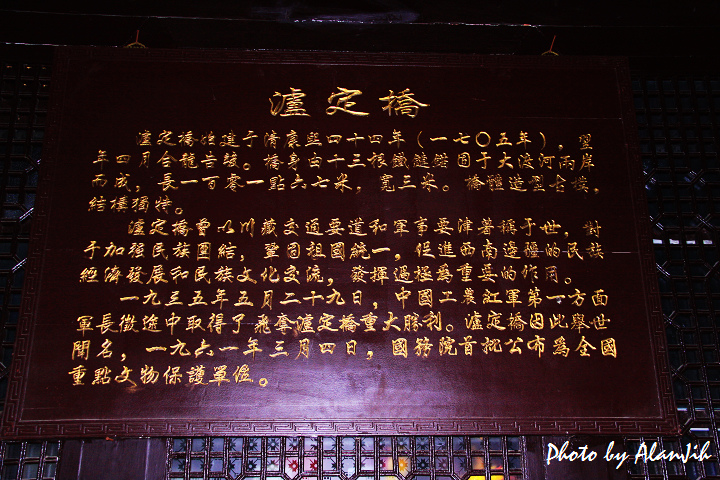 瀘定橋
瀘定橋始建于清康熙四十四年(一七〇五年),翌
年四月合龍告竣。橋身由十三根鐵鏈錨固于大渡河兩岸
而成,長一百零一點六七米,寬三米。橋體造型古樸,
結構獨特。
瀘定橋曾以川藏交通要道和軍事要津著稱于世,對
于加强民族團結,鞏固祖國統一,促進西南邊疆的民族
經濟發展和民族文化交流,發揮過極爲重要的作用。
一九三五年五月二十九日,中國工農紅軍第一方面
軍長徵途中取得了飛奪瀘定橋重大勝利。瀘定橋因此舉世
聞名,一九六一年三月四日,國務院首批公布為全國
重點文物保護單位。
Photo by AlanJih